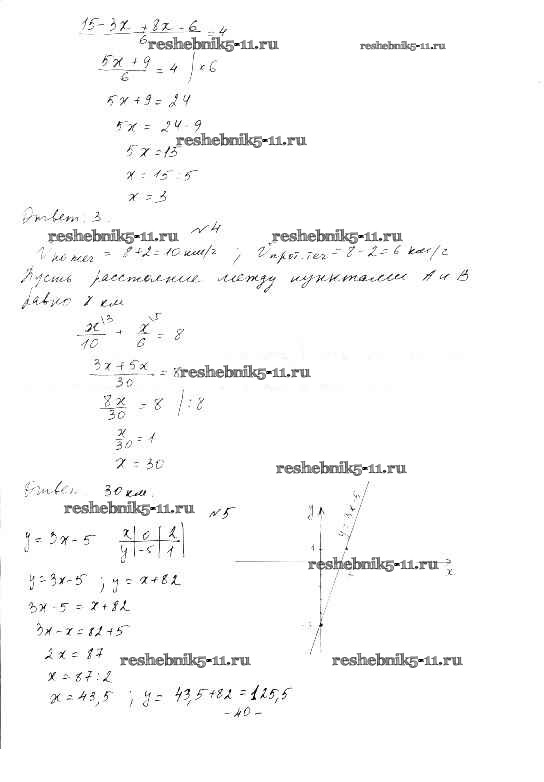 15-3x + 8x-6 = 4
6
reshebnik5-11.ru
reshebnik5-11.ru
5x+9 / 6 = 4 | ×6
5x+9 = 24
5x = 24-9
reshebnik5-11.ru
5x=15
x = 15:5
x = 3
Ответ: 3.
№4
reshebnik5-11.ru
reshebnik5-11.ru
V по теч = 8+2=10 км/г ; V прот.теч = 8-2=6 км/г
Пусть расстояние между пунктами А и В
равно x км
x\3 / 10 + x\5 / 6 = 8
3x+5x / 30 = 8
reshebnik5-11.ru
8x/30 = 8 | :8
x/30 = 1
x = 30
reshebnik5-11.ru
Ответ 30 км.
reshebnik5-11.ru
№5
y = 3x-5
x | 0 | 2
y | -5 | 1
y
y=3x-5
1
reshebnik5-11.ru
x
y=3x-5 ; y = x+82
3x-5 = x+82
3x-x = 82+5
2x = 87
reshebnik5-11.ru
reshebnik5-11.ru
x = 87:2
x = 43,5 ; y = 43,5+82=125,5
-40-